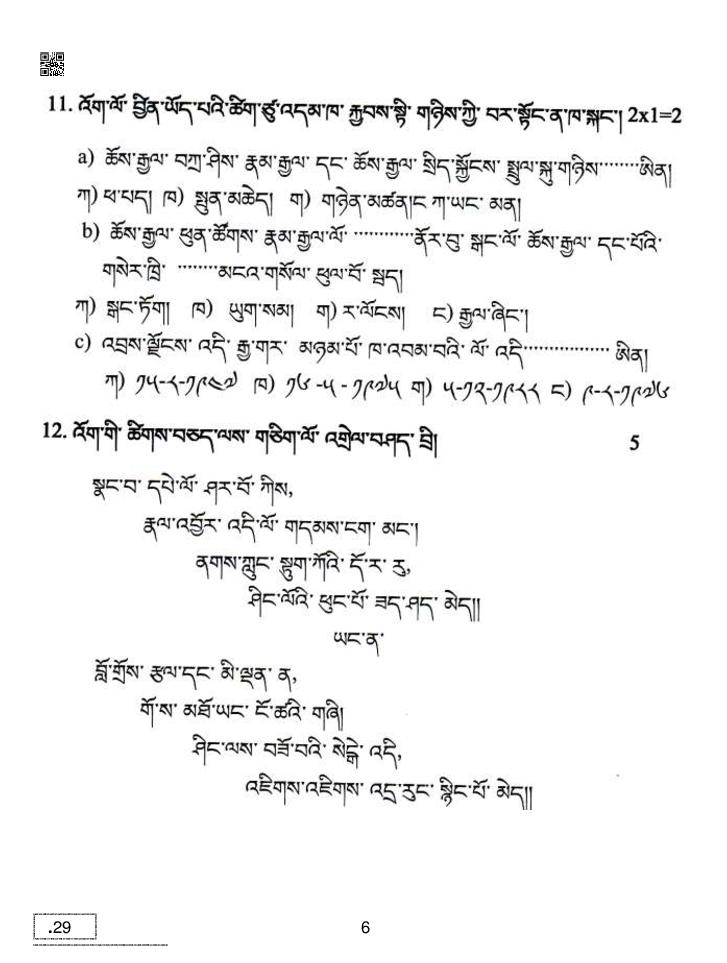 11. འོག་ལོ་ བྱིན་ཡོད་པའི་ཚིག་ཙུ་འདམ་ཁ་ རྐྱབས་སྟི་ གཉིས་ཀྱི་ བར་སྟོང་ན་ཁ་སྐང་། 2x1=2
a) ཆོས་རྒྱལ་ བཀྲ་ཤིས་ རྣམ་རྒྱལ་ དང་ ཆོས་རྒྱལ་ སྲིད་སྐྱོངས་ སྤྲུལ་སྐུ་གཉིས........ཨིན།
ཀ) ཕ་པད། ཁ) སྤུན་མཆེད། ག) གཉེན་མཚན།ང ཀ་ཡང་ མན།
b) ཆོས་རྒྱལ་ ཕུན་ཚོགས་ རྣམ་རྒྱལ་ལོ་ ............ནོར་བུ་ སྒང་ལོ་ ཆོས་རྒྱལ་ དང་པོའི་
གསེར་ཁྲི་ ........མངའ་གསོལ་ ཕུལ་བོ་ སྦད།
ཀ) སྒང་ཏོག། ཁ) ཡུག་སམ། ག) ར་ལོངས། ང) རྒྱལ་ཞིང་།
c) འབྲས་ལྗོངས་ འདི་ རྒྱ་གར་ མཉམ་པོ་ ཁ་འབམ་བའི་ ལོ་ འདི................ ཨིན།
ཀ) ༡༥-༨-༡༩༤༧ ཁ) ༡༦-༥-༡༩༧༥ ག) ༥-༡༢-༡༩༨༨ ང) ༩-༨-༡༩༧༦
12. འོག་གི་ ཚིགས་བཅད་ལས་ གཅིག་ལོ་ འགྲེལ་བཤད་ བྲི། 5
སྣང་བ་ དཔེ་ལོ་ ཤར་བོ་ ཀིས,
རྣལ་འབྱོར་ འདི་ལོ་ གདམས་ངག་ མང་།
ནགས་ཀླུང་ སྟུག་ཀོའི་ དོ་ར་ རུ,
ཤིང་ལོའི་ ཕུང་པོ་ ཟད་ཤད་ མེད།།
ཡང་ན་
བློ་གྲོས་ རྩལ་དང་ མི་ལྡན་ ན,
གོ་ས་ མཐོ་ཡང་ ངོ་ཚའི་ གཞི།
ཤིང་ལས་ བཟོ་བའི་ སེངྒེ་ འདི,
འཇིགས་འཇིགས་ འདྲ་རུང་ སྙིང་པོ་ མེད།།
.29
6